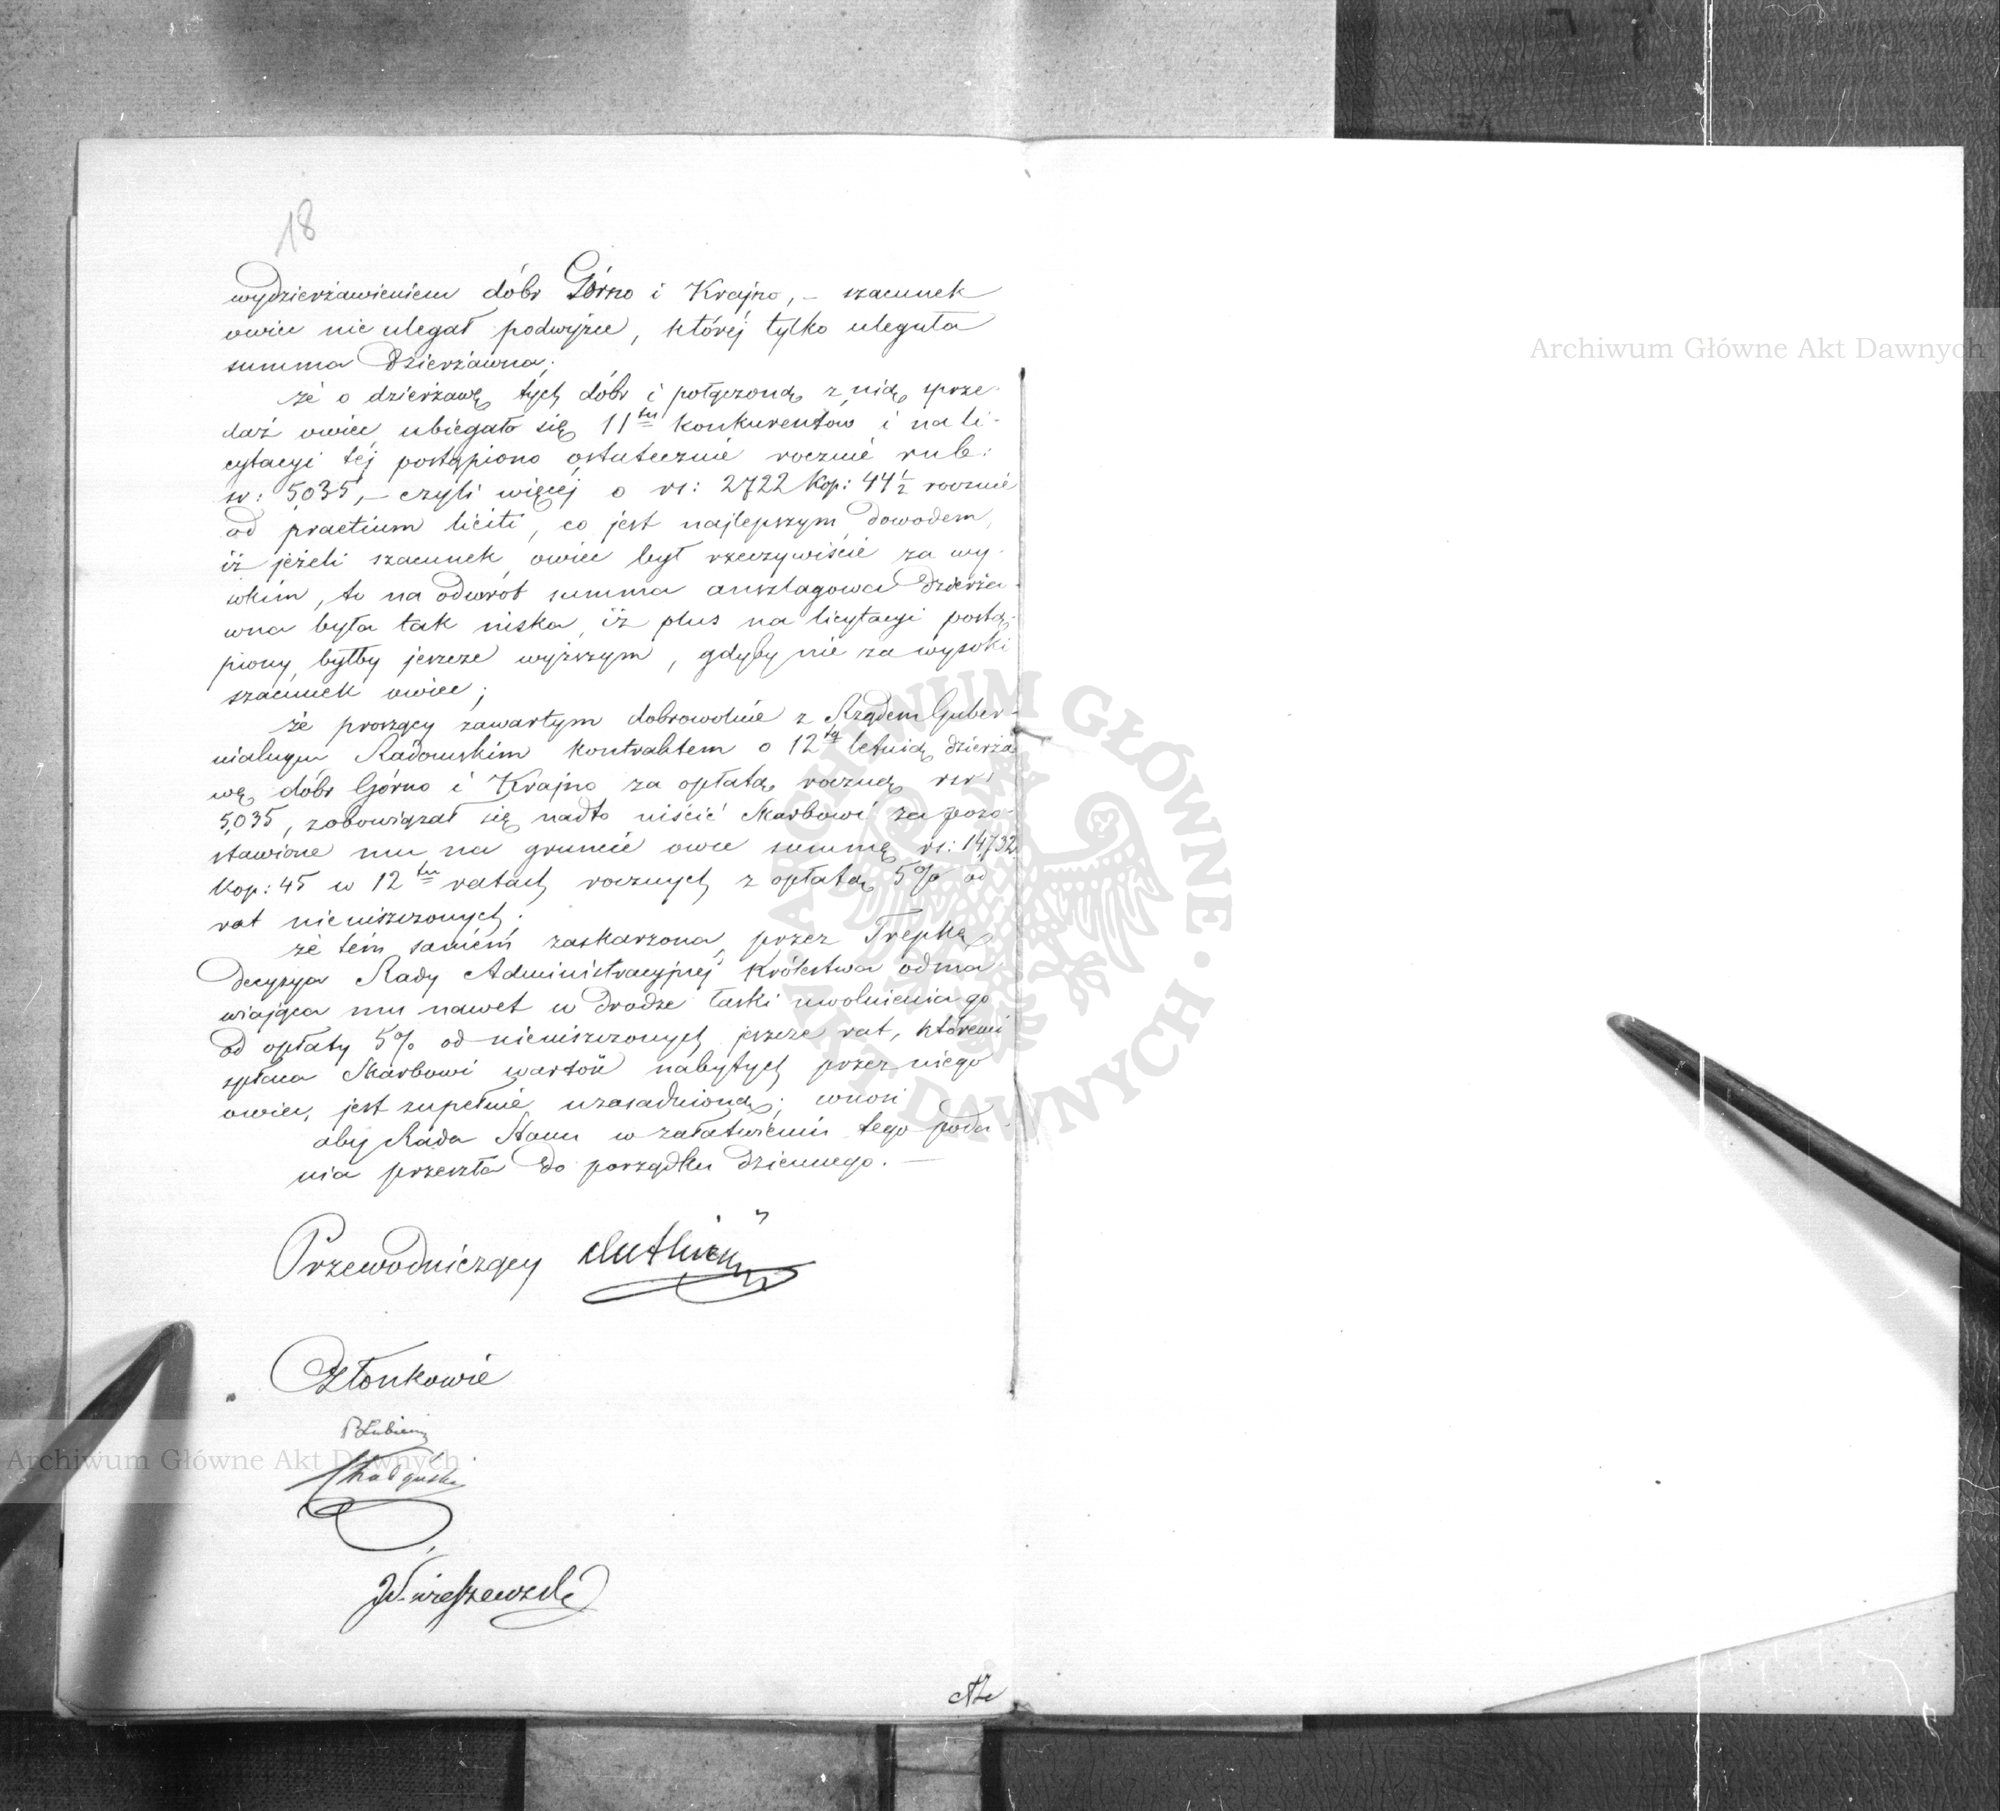 18
wydzierżawieniem dóbr Górno i Krajno, – szacunek
owiec nie ulegał podwyżce, której tylko uległa
summa dzierżawna;
że o dzierżawę tych dóbr i połączoną z nią sprze-
daż owiec ubiegało się 11tu konkurentów i na li-
cytacyi tej postąpiono ostatecznie rocznie rub:
sr: 5035, – czyli więcéj o rs: 2722 kop: 44 1/2 rocznie
od praetium liciti, co jest najlepszym dowodem,
iż jeżeli szacunek owiec był rzeczywiście za wy-
sokim, to na odwrót summa anszlagowa dzierża-
wna była tak niska, iż plus na licytacyi postą-
piony, byłby jeszcze wyższym, gdyby nie za wysoki
szacunek owiec;
że proszący zawartym dobrowolnie z Rządem Guber-
nialnym Radomskim kontraktem o 12to letnią dzierża-
wę dóbr Górno i Krajno za opłatą roczną rsr
5,035, zobowiązał się nadto uiścić Skarbowi za pozo-
stawione mu na gruncie owce summę rs: 14,732
kop: 45 w 12tu ratach rocznych z opłatą 5% od
rat nieuiszczonych;
że tém samém zaskarzona przez Trepkę
decyzya Rady Administracyjnéj Królestwa odma
wiająca mu nawet w drodze łaski uwolnienia go
od opłaty 5% od nieuiszczonych jeszcze rat, któremi
spłaca Skarbowi wartość nabytych przez niego
owiec, jest zupełnie uzasadnioną; wnosi
aby Rada Stanu w załatwieniu tego poda-
nia przeszła do porządku dziennego. –
Przewodniczący
Członkowie
Archiwum Główne Akt Dawnych
Archiwum Główne Akt Dawnych
ARCHIWUM GŁÓWNE AKT DAWNYCH